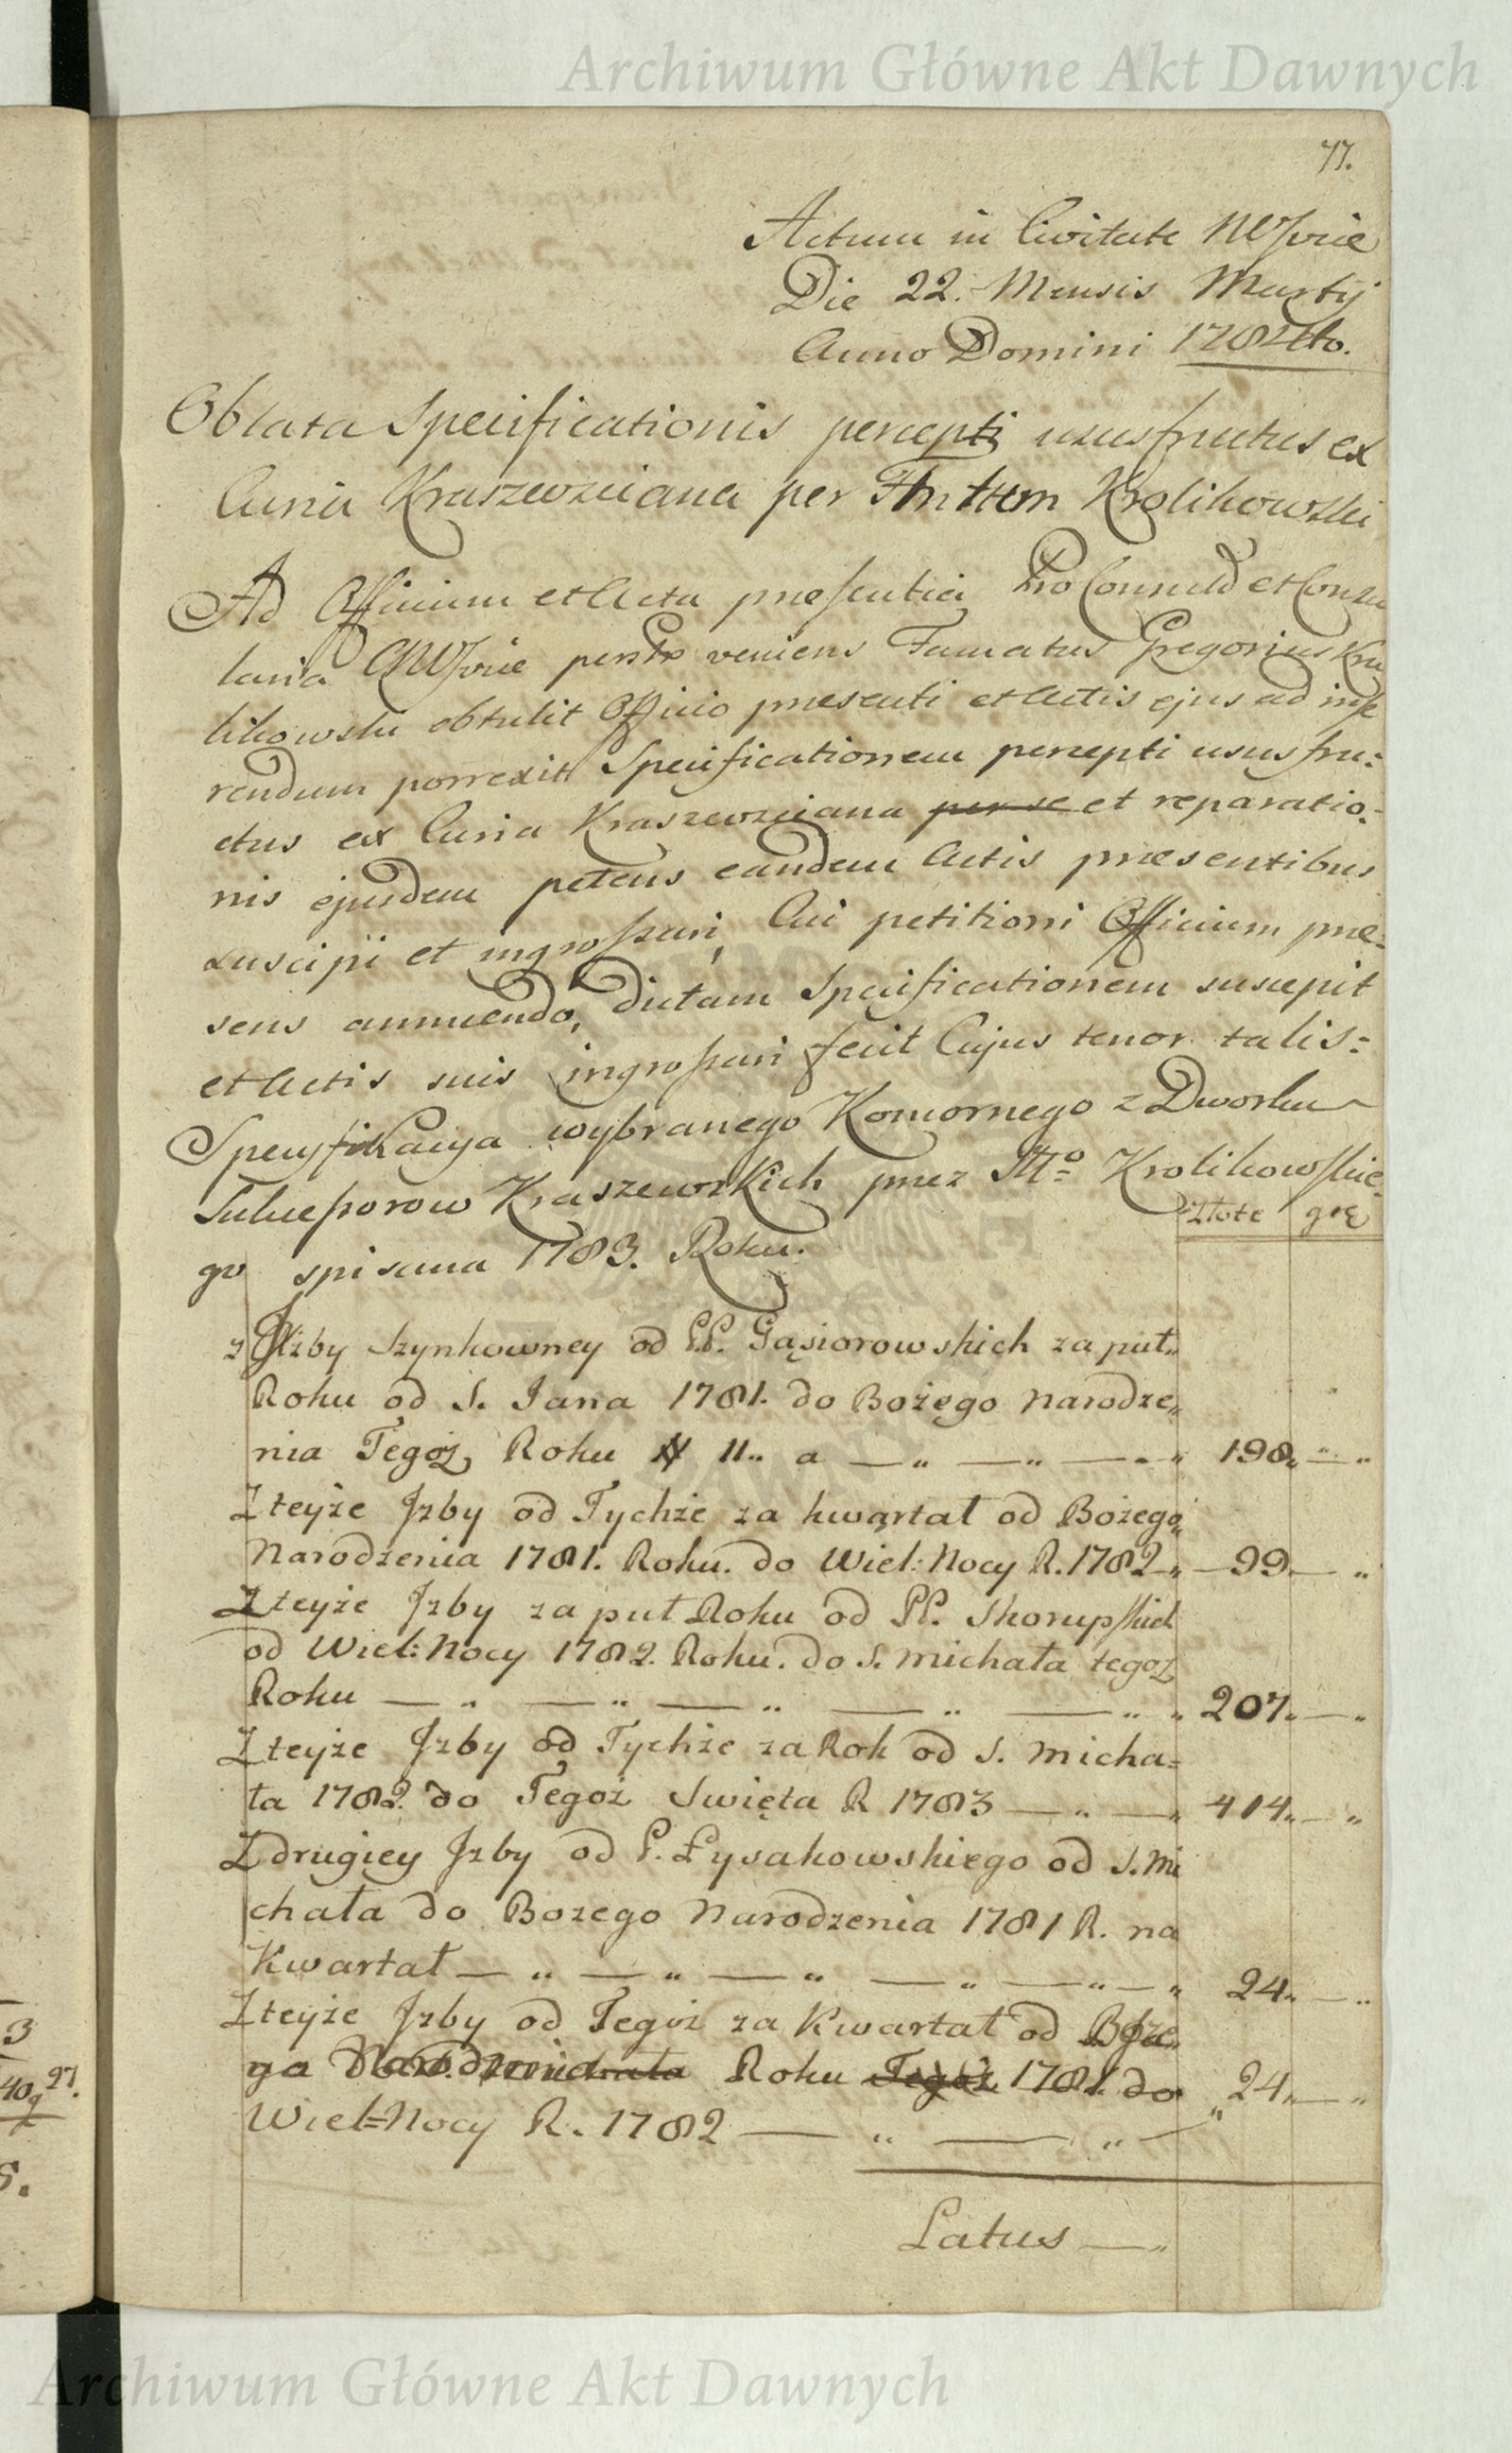 Archiwum Główne Akt Dawnych
77.
Actum in Civitate NWsvie
Die 22. Mensis Martij
Anno Domini 1784to.
Oblata Specificationis percepti ususfructus ex
Curia Kraszewsciana per Fmttm Krolikowski
Ad Officium et Acta præsentia Pro Consuld et Consu
laria CNWsvie personlr veniens Famatus Gregorius Kro
likowski obtulit Officio præsenti et Actis ejus ad inse
rendum porrexit Specificationem percepti usus fru:
ctus ex Curia Kraszewsciana per se et reparatio:
nis ejusdem petens eandem Actis præsentibus
suscipi et ingrossari, Cui petitioni Officium præ:
sens annuendo, dictam Specificationem suscepit
et Actis suis ingrossari fecit Cujus tenor talis:
Specyfikacya wybranego Komornego z Dworku
Sukcessorow Kraszewskich przez Mo Krolikowskie:
złote gr
go spisana 1783. Roku.
z Jzby Szynkowney od P.P. Gąsiorowskich za puł„
Roku od S. Jana 1781. do Bożego Narodze„
nia Tegoż Roku 11„ a — „ — „ — „ 198„ — „
Z teyże Jzby od Tychże za kwartał od Bożego„
Narodzenia 1781. Roku. do Wiel: Nocy R. 1782 — „ — 99 — „
Z teyże Jzby za puł Roku od PP. Skorupskich
od Wiel: Nocy 1782. Roku. do S. Michała tegoż
Roku — „ — „ — „ — „ — „ „ 207„ — „
Z teyże Jzby od Tychże za Rok od S. Micha=
ła 1782 do Tegoż Swięta R 1783 — „ — „ 414„ — „
Z drugiey Jzby od P. Łysakowskiego od S. Mi
chała do Bozego Narodzenia 1781 R. na
Kwartał — „ — „ — „ — „ — „ — „ 24„ — „
Z teyże Jzby od Tegoż za Kwartał od Boże„
go Narodzenia Roku Tegoż 1781. do „ 24„ — „
Wiel=Nocy R. 1782 — „ — „ —
Latus — „
3
40g 27.
S.
Archiwum Główne Akt Dawnych